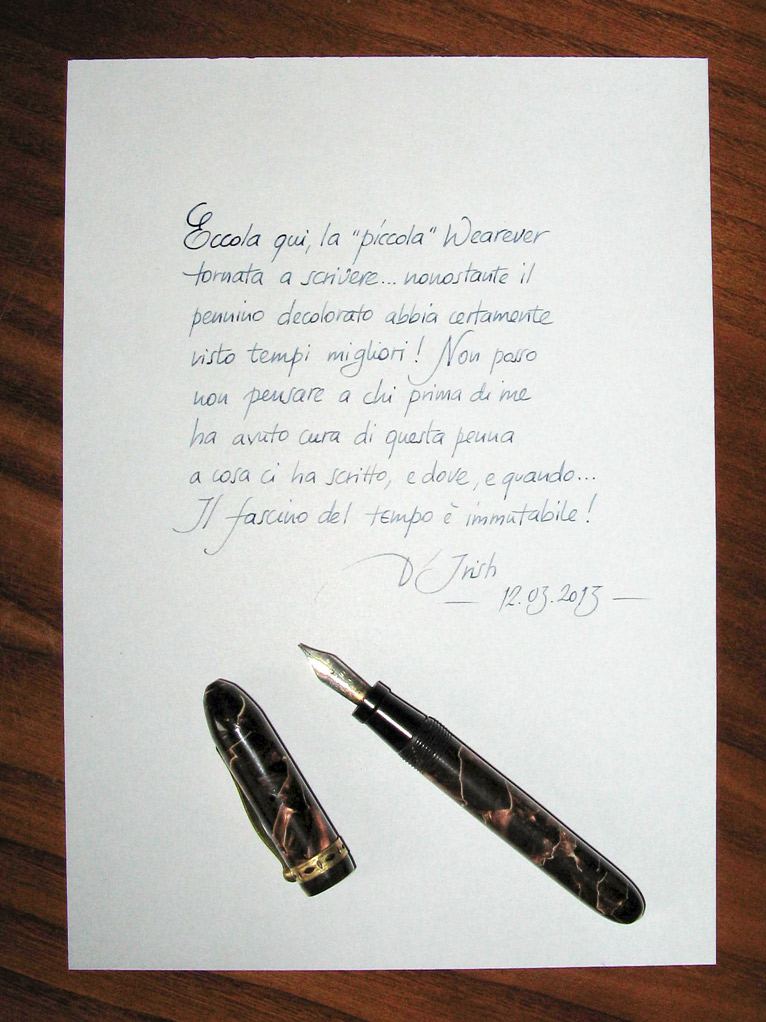 Eccola qui, la "piccola" Wearever
tornata a scrivere... nonostante il
pennino decolorato abbia certamente
visto tempi migliori! Non posso
non pensare a chi prima di me
ha avuto cura di questa penna
a cosa ci ha scritto, e dove, e quando...
Il fascino del tempo è immutabile!
D'Irish
— 12.03.2013 —